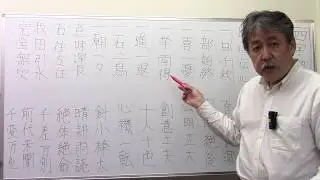 四字
日千秋
部始終
一挙両得
一進一退
一石二鳥
意味深長
右往左往
我田引水
完全無欠
明正大
創意工夫
十人十色
心機一転
針小棒大
晴耕雨読
絶体絶命
千差万別
前代未聞
千変万化